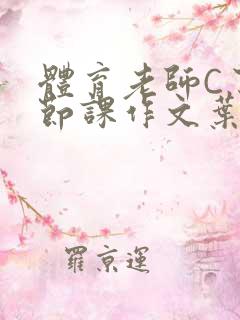 體育老師C了
節課作文葉
羅京運